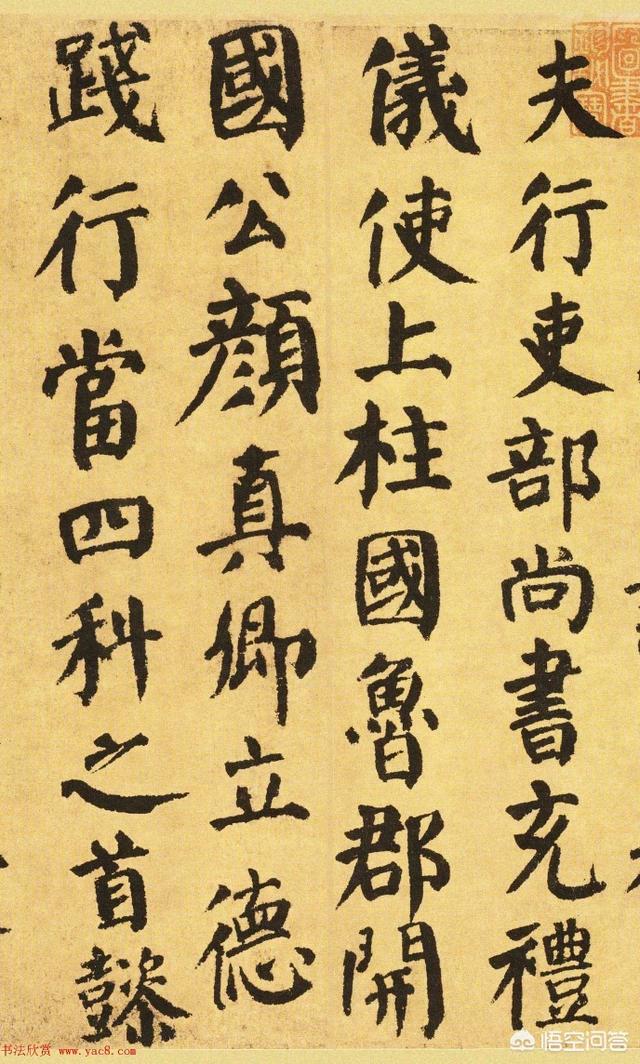 夫行吏部尚書充禮
儀使上柱國魯郡開
國公顏真卿立德
踐行當四科之首懿
书法欣赏 www.yac8.com
悟空问答